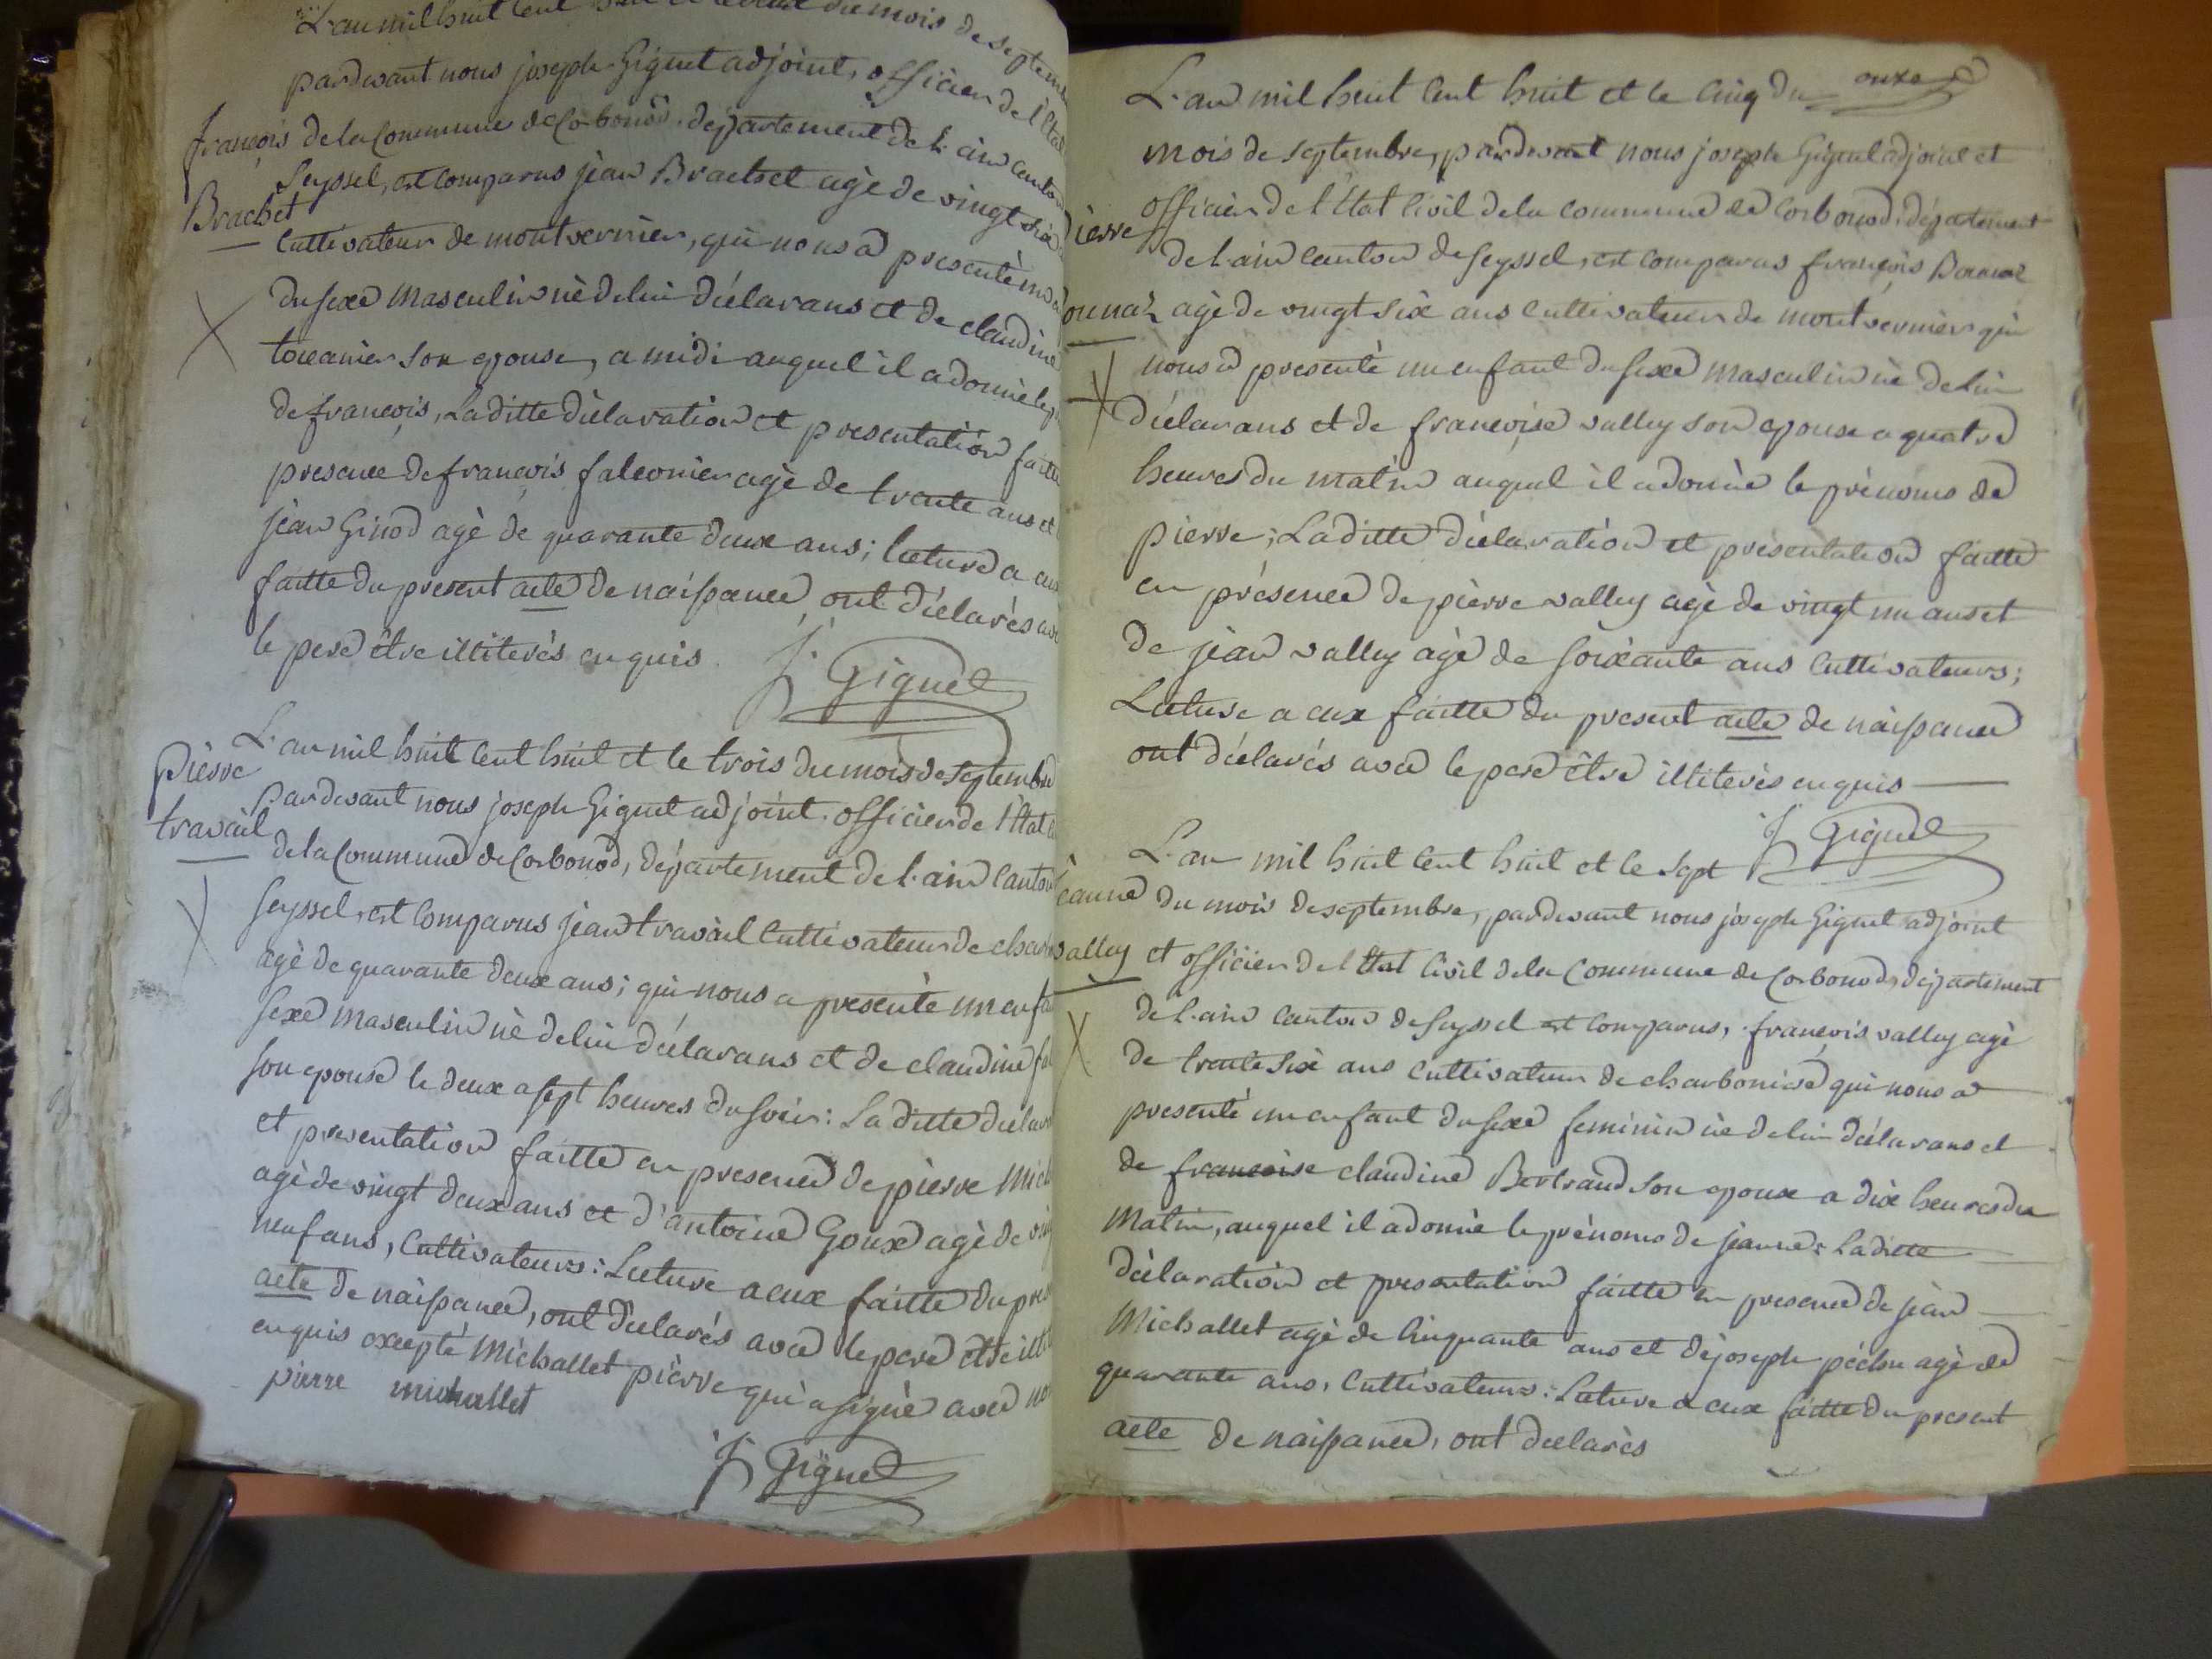 L'an mil huit cent huit et le du mois de septem
pardevant nous joseph Giguet adjoint, officier de l'Etat
françois de la Commune de Corbonod, departement de l'ain canton
Seyssel, est comparus jean Brachet agè de vingt six
Brachet
Cultivateur de montvernier, qui nous a presentè
du sexe masculin nè de lui déclarans et de claudine
son epouse, a midi auquel il a donnè le
de françois, La ditte déclaration et presentation faitte
presence de françois falconier agè de trente ans et
jean Ginod agè de quarante deux ans; lecture a eux
faitte du present acte de naissance, ont déclarès
le pere être illiterès enquis
J Giguet
L'an mil huit cent huit et le trois du mois de septembre
pièrre
Pardevant nous joseph Giguet adjoint officier de l'Etat
travail
de la Commune de Corbonod, département de l'ain Canton
Seyssel, est Comparus jean travail Cultivateur de
agè de quarante deux ans; qui nous a presentè un enf
sexe masculin nè de lui déclarans et de claudine
son epouse le deux a sept heures du soir: La ditte déclar
et presentation faitte en presence de pièrre Mich
agè de vingt deux ans et d'antoine Goux agè de
neuf ans, Cultivateurs: Lecture a eux faitte du pres
acte de naissance, ont déclarés avec le pere être ill
enquis excepté Michallet pièrre qui a signè avec
pierre michallet
J Giguet
L'an mil huit cent huit et le Cinq du onze
mois de septembre, pardevant nous joseph Giguet adjoint et
officier de l'Etat Civil de la Commune de Corbonod, département
pierre
de l'ain canton de seyssel, est comparus françois Bonnaz
onnaz agè de vingt six ans Cultivateur de montvernier qui
nous a presentè un enfant du sexe masculin nè de lui
déclarans et de françoise valley son epouse a quatre
heures du matin auquel il a donnè le prènoms de
pierre; La ditte déclaration et presentation faitte
en présence de pièrre valley agè de vingt un ans et
de jean valley agè de soixante ans Cultivateurs;
Lecture a eux faitte du present acte de naissance
ont déclarés avec le pere être illiterès enquis
J Giguet
L'an mil huit cent huit et le sept
eanne du mois de septembre, pardevant nous joseph Giguet adjoint
valley et officier de l'Etat Civil de la Commune de Corbonod, département
de l'ain Canton de Seyssel est Comparus, françois valley agè
de trente six ans Cultivateur de charboniere qui nous a
presenté un enfant du sexe feminin nè de lui déclarans et
de françoise claudine Bertrand son epouse a dix heures du
matin, auquel il a donnè le prènoms de jeanne: La ditte
déclaration et presentation faitte en presence de jean
Michallet agè de Cinquante ans et de joseph péchu agè de
quarante ans, Cultivateurs: Lecture a eux faitte du present
acte de naissance, ont déclarés